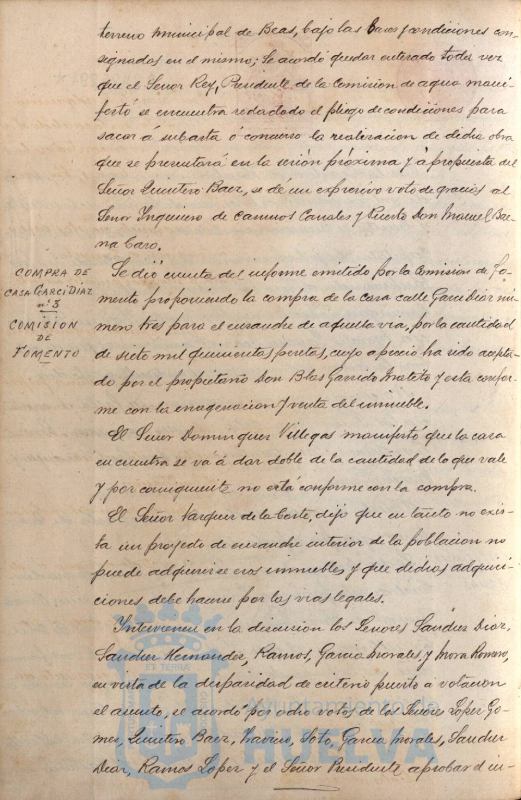 terreno municipal de Beas, bajo las bases y condiciones con-
signadas en el mismo; Se acordó quedar enterado toda vez
que el Señor Rey, Presidente de la Comision de agua mani-
festó se encuentra redactado el pliego de condiciones para
sacar á subasta ó concurso la realizacion de dicha obra
que se presentará en la sesión próxima y á propuesta del
Señor Quintero Baez, se dé un expresivo voto de gracias al
Señor Ingeniero de Caminos Canales y Puerto Don Manuel Bae-
na Caro.
COMPRA DE
CASA GARCI DIAZ
nº 3
COMISION
DE
FOMENTO
Se dió cuenta del informe emitido por la Comision de Fo-
mento proponiendo la compra de la casa calle Garci Diaz nú-
mero tres para el ensanche de aquella via, por la cantidad
de siete mil quinientas pesetas, cuyo aprecio ha sido acepta-
do por el propietario Don Blas Garrido y esta confor-
me con la enagenacion y venta del inmueble.
El Señor Dominguez Villegas manifestó que la casa
en cuenta se vá á dar doble de la cantidad de lo que vale
y por consiguiente no está conforme con la compra.
El Señor Vazquez de la Corte, dijo que en tanto no exis-
ta un proyecto de ensanche interior de la poblacion no
puede adquirirse esos inmuebles y que dichas adquisi-
ciones debe hacerse por las vias legales.
Intervienen en la discusion los Señores Sanchez Diaz,
Sanchez Hernandez, Ramos, Garcia Morales y Mora Romero,
en vista de la disparidad de criterio puesto á votacion
el asunto, se acordó por ocho votos de los Señores Lopez Go-
mez, Quintero Baez, Soto, Garcia Morales, Sanchez
Diaz, Ramos Lopez y el Señor Presidente aprobar el in-
Ayuntamiento de
HUELVA